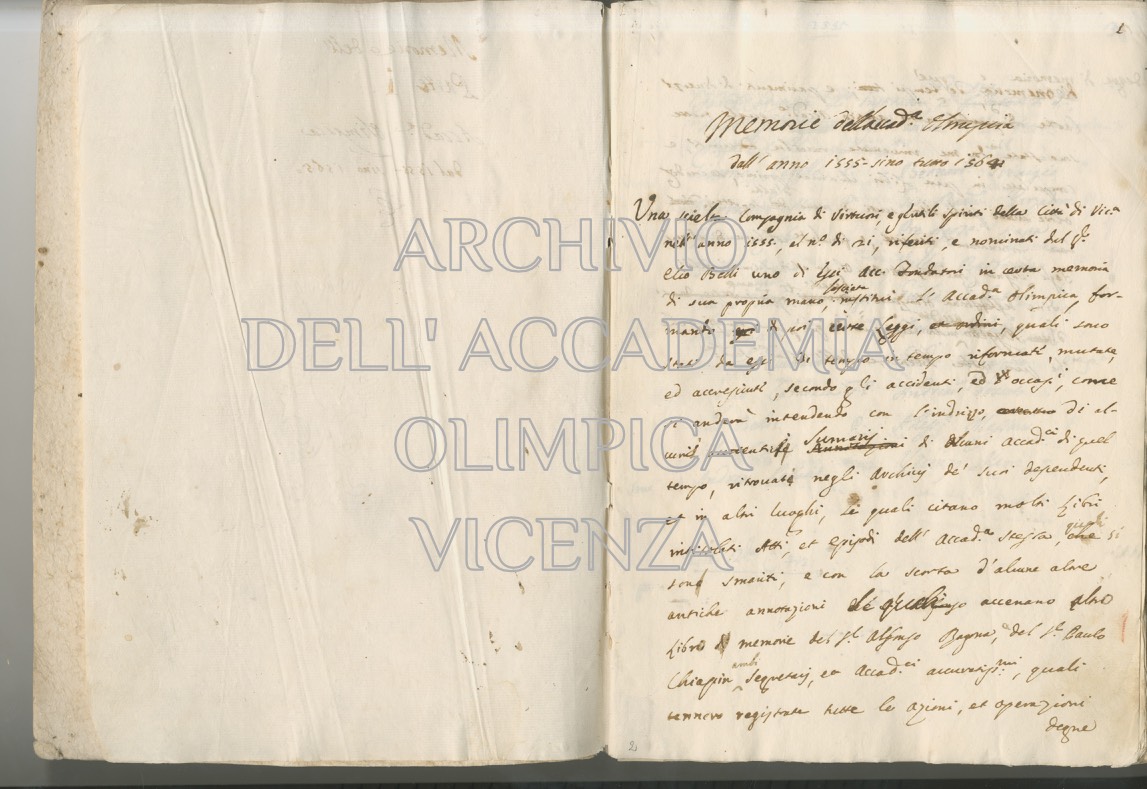 1
Memorie dell'Accad.a Olimpica
dall'anno 1555 sino tutto 156
Una scielta Compagnia di Virtuosi, e gentili spiriti della Città di Vic.a
nell'anno 1555, al n.o di 21, riferiti, e nominati dal Sr.
Elio Belli uno di essi Acc. Fondatori in certa memoria
lasciata
di sua propria mano, instituì l'Accad.a Olimpica, for-
mando di noi Leggi, et ordini, quali sono
stati da essi di tempo in tempo riformati, mutate,
ed accresciuti, secondo gli accidenti, ed occasi, come
s'anderà intendendo con l'indrizzo, di al-
Sumarij
cuni autentici di alcuni Accad.ci di quel
tempo, ritrovati negli Archivij de' suoi dependenti,
et in altri luoghi, Le quali citano molti Libri
intitolati Atti, et episodi dell'Accad.a stessa, che si
sono smariti, e con la scorta d'alcune altre
antiche annotazioni de quali accenano altro
Libro di memorie del Sr. Alfonso Ragona, e del Sr. Paulo
ambi
Chiapin Segretarij, et Accad.ci accuratiss.mi, quali
tennero registrate tutte le azioni, et operazioni
degne
2
ARCHIVIO
DELL' ACCADEMIA
OLIMPICA
VICENZA